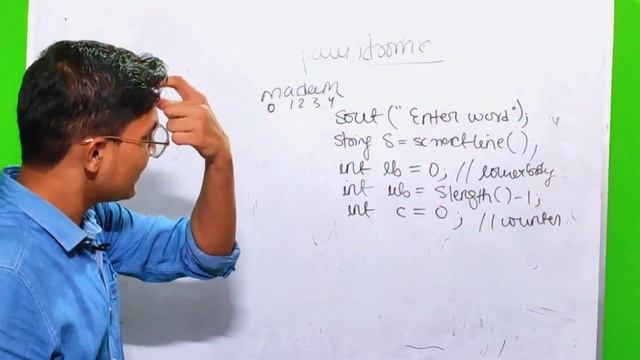 madam
0 1 2 3 4
sout("Enter word");
String S = sc.nextLine();
int lb = 0; // lowerbody
int ub = S.length()-1;
int c = 0; // counter